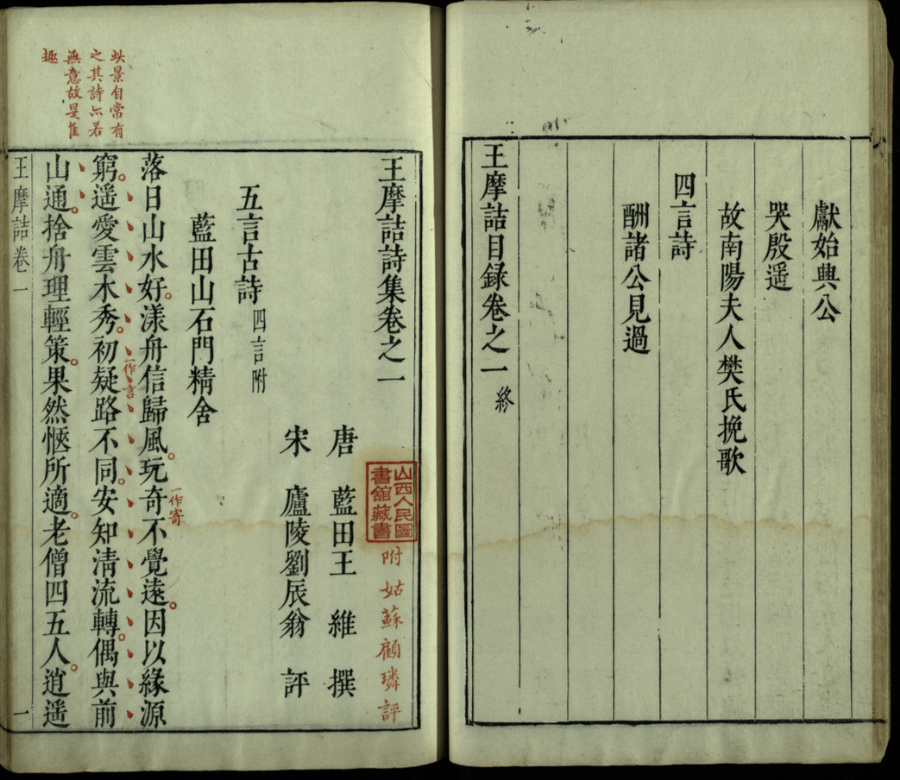 獻始興公
哭殷遥
故南陽夫人樊氏挽歌
四言詩
酬諸公見過
王摩詰目録卷之一終
王摩詰詩集卷之一
山西人民圖
書舘藏書
附姑蘇顧璘評
唐 藍田王 維 撰
宋 廬陵劉辰翁 評
五言古詩四言附
藍田山石門精舍
落日山水好。漾舟信歸風。玩奇不覺遠。因以緣源
一作寄
一作言
窮。遥愛雲木秀。初疑路不同。安知清流轉。偶與前
山通。捨舟理輕策。果然愜所適。老僧四五人。逍遥
此景自常有
之其詩亦若
無意故是佳
趣
王摩詰卷一
一